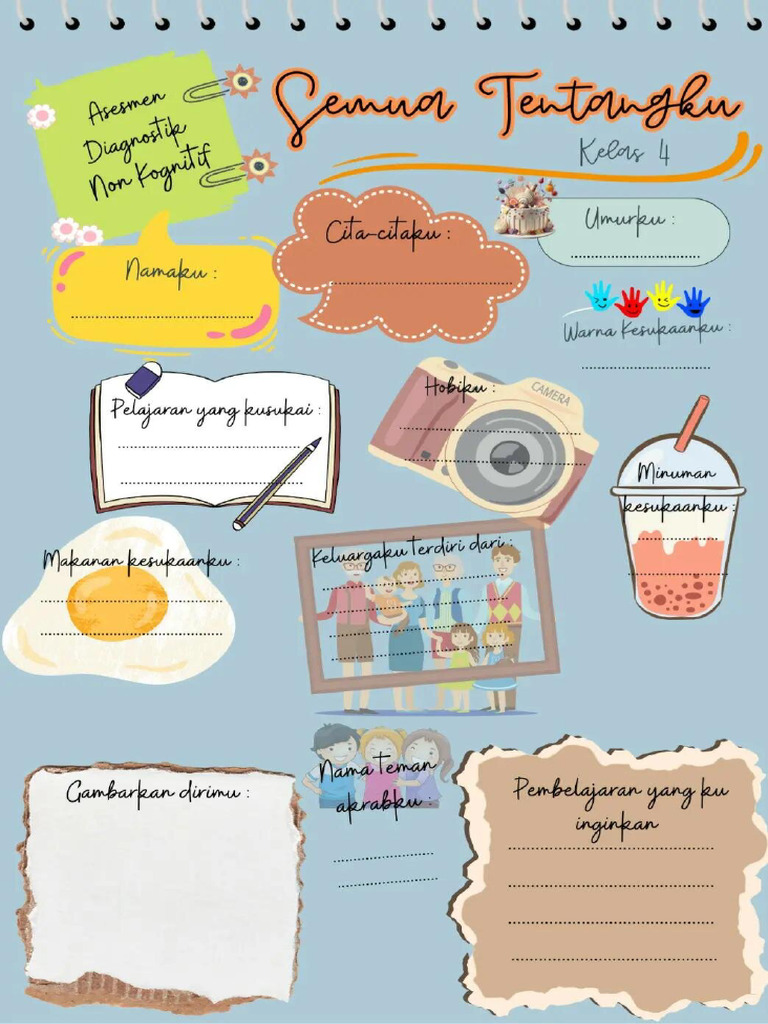 Asesmen
Diagnostik
Non Kognitif
Semua Tentangku
Kelas 4
Namaku :
Cita-citaku :
Umurku :
Warna Kesukaanku :
Pelajaran yang kusukai :
Hobiku :
CAMERA
Minuman
kesukaanku :
Makanan kesukaanku :
Keluargaku terdiri dari :
Gambarkan dirimu :
Nama teman
akrabku :
Pembelajaran yang ku
inginkan